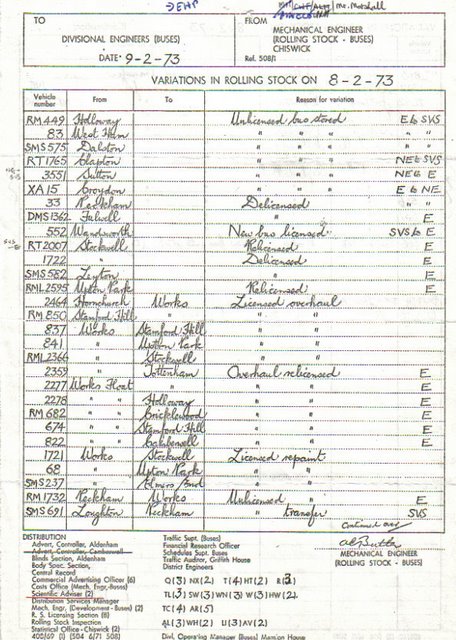 → DEHP
TO
DIVISIONAL ENGINEERS (BUSES)
DATE 9-2-73
FROM
MECHANICAL ENGINEER
(ROLLING STOCK - BUSES)
CHISWICK
Ref. 508/1
VARIATIONS IN ROLLING STOCK ON 8-2-73
Vehicle number From To Reason for variation
RM 449 Holloway Unlicensed bus stored E to SVS
83 West Ham " " " " "
SMS 575 Dalston " " " " "
RT 1765 Clapton " " " NE to SVS
3551 Sutton " " " NE to E
XA 15 Croydon " " " E to NE
33 Peckham Delicensed " "
DMS 1362 Fulwell " E
552 Wandsworth New bus licensed SVS to E
RT 2007 Stockwell Relicensed E
1722 " Delicensed E
SMS 582 Leyton " E
RML 2595 Upton Park Relicensed E
2464 Hornchurch Works Licensed overhaul
RM 850 Stamford Hill " " "
837 Works Stamford Hill " "
841 " Upton Park " "
RML 2366 " Stockwell " "
2359 " Tottenham Overhaul relicensed E
2277 Works Float " " " E
2278 " " Holloway " " E
RM 682 " " Cricklewood " " E
674 " " Stamford Hill " " E
822 " " Camberwell " " E
1721 Works Stockwell Licensed repaint
68 " Upton Park " "
SMS 237 " Elmers End " "
RM 1732 Peckham Works Unlicensed " E
SMS 691 Loughton Peckham " transfer SVS
Continued over
DISTRIBUTION
Advert, Controller, Aldenham
Advert, Controller, Camberwell
Blinds Section, Aldenham
Body Spec. Section,
Central Record
Commercial Advertising Officer (6)
Costs Office (Mech. Engr.-Buses)
Scientific Adviser (2)
Distribution Services Manager
Mech. Engr. (Development - Buses) (2)
R. S. Licensing Section (8)
Rolling Stock Inspection
Statistical Office - Chiswick (2)
Traffic Supt. (Buses)
Financial Research Officer
Schedules Supt. Buses
Traffic Auditor, Griffith House
District Engineers
Q(3) NX(2) T(4) HT(2) R(3)
TL(3) SW(3) WN(3) W(3) HW(2)
TC(4) AR(5)
AL(3) WH(2) U(3) AV(2)
Divl. Operating Manager (Buses) Mansion House
MECHANICAL ENGINEER
(ROLLING STOCK - BUSES)